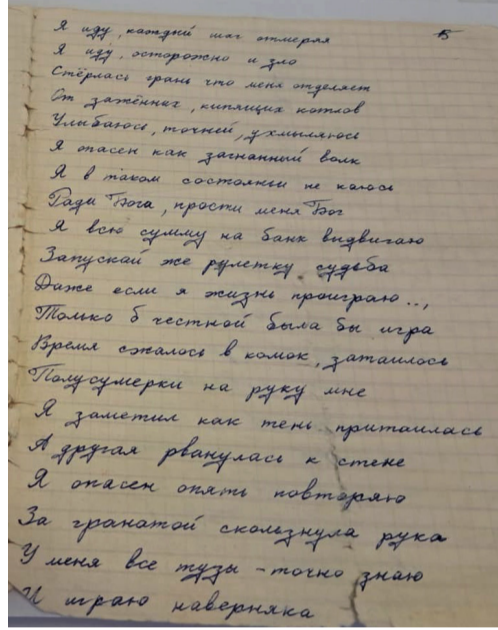 5
Я иду, каждый шаг отмеряя
Я иду, осторожно и зло
Стёрлась грань что меня отделяет
От зажённых, кипящих котлов
Улыбаюсь, точней, ухмыляюсь
Я опасен как загнанный волк
Я в таком состояньи не каюсь
Ради Бога, прости меня Бог
Я всю сумму на банк выдвигаю
Запускай же рулетку судьба
Даже если я жизнь проиграю..,
Только б честной была бы игра
Время сжалось в комок, затаилось
Полусумерки на руку мне
Я заметил как тень притаилась
А другая рванулась к стене
Я опасен опять повторяю
За гранатой скользнула рука
У меня все тузы - точно знаю
И играю наверняка